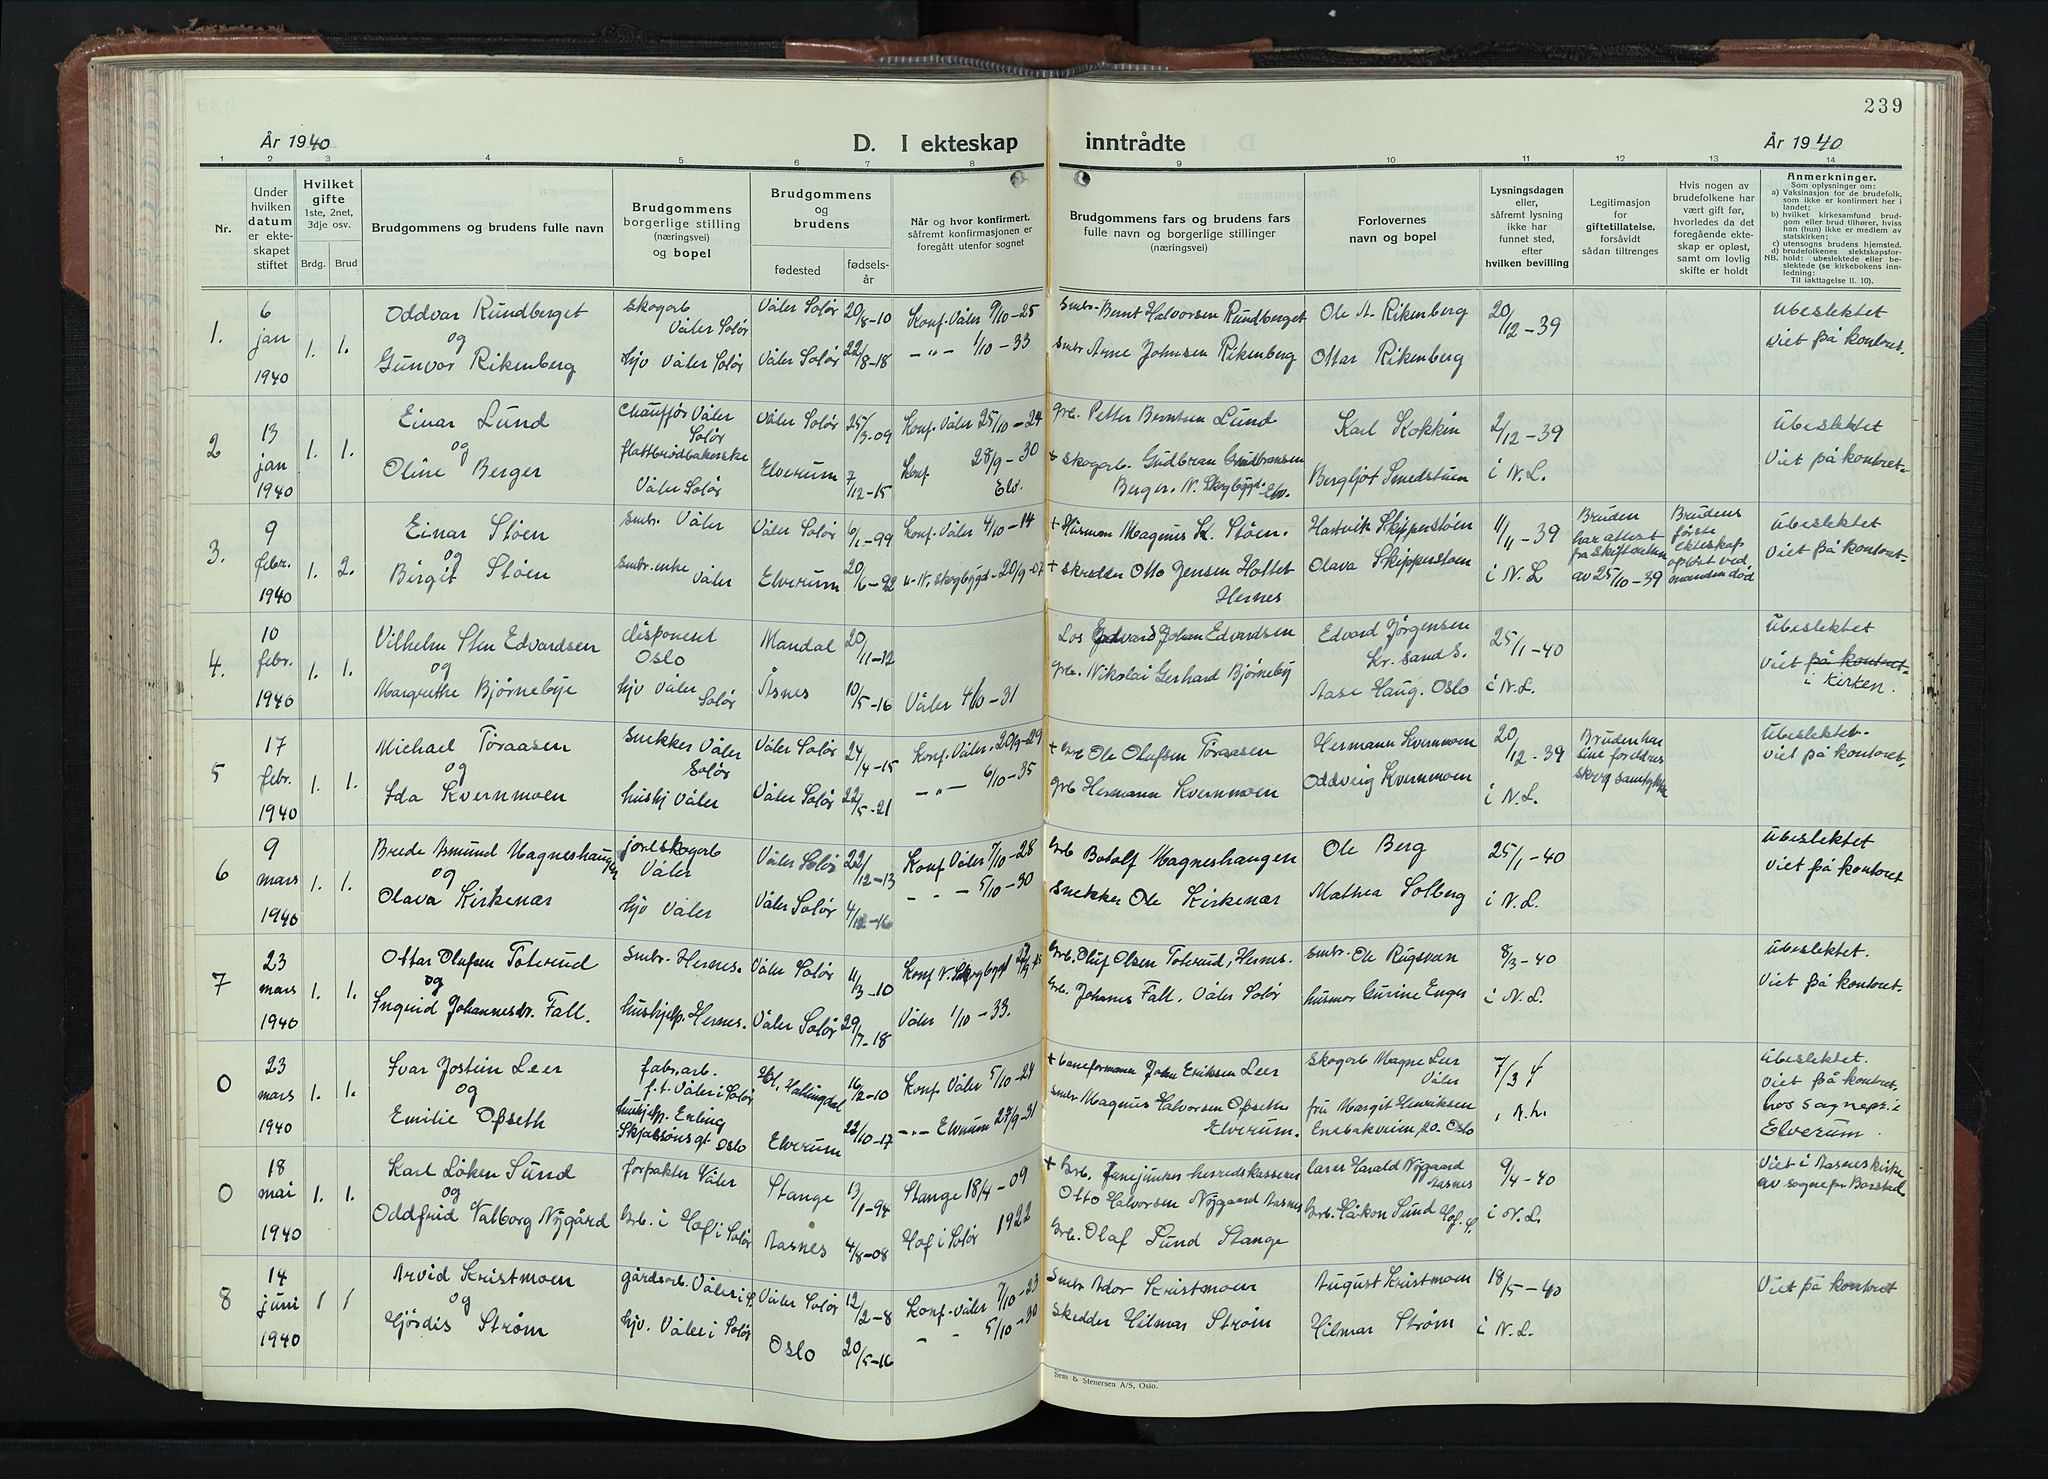 239
År 1940
D. I ekteskap inntrådte
År 1940
1 2 3 4 5 6 7 8 9 10 11 12 13 14
Nr.
Under hvilken datum er ekteskapet stiftet
Hvilket gifte
1ste, 2net, 3dje osv.
Brdg. Brud
Brudgommens og brudens fulle navn
Brudgommens borgerlige stilling (næringsvei) og bopel
Brudgommens og brudens
fødested
fødselsår
Når og hvor konfirmert, såfremt konfirmasjonen er foregått utenfor sognet
Brudgommens fars og brudens fars fulle navn og borgerlige stillinger (næringsvei)
Forlovernes navn og bopel
Lysningsdagen eller, såfremt lysning ikke har funnet sted, efter hvilken bevilling
Legitimasjon for giftetillatelse, forsåvidt sådan tiltrenges
Hvis nogen av brudefolkene har vært gift før, hvorledes da det foregående ekteskap er opløst, samt om lovlig skifte er holdt
Anmerkninger.
Som oplysninger om:
a) Vaksinasjon for de brudefolk, som ikke er konfirmert her i landet;
b) hvilket kirkesamfund brudgom eller brud tilhører, hviss han (hun) ikke er medlem av statskirken;
c) utensogns brudens hjemsted.
d) brudefolkenes slektskapsforhold: ubeslektede eller beslektede (se kirkebokens innledning;
NB. Til iakttagelse II. 10).
1. 6 jan 1940 1. 1.
Oddvar Rundberget og Gunvor Rikenberg
skogarb Våler Solør
hjv Våler Solør
Våler Solør 20/8-10
Våler Solør 22/8-18
Konf. Våler 9/10-25
-"- 1/10-33
Smbr. Bernt Halvorsen Rundberget
Smbr Arne Johnsen Rikenberg
Ole A. Rikenberg
Ottar Rikenberg
20/12-39
Ubeslektet
Viet på kontoret.
2 13 jan 1940 1. 1.
Einar Lund og Oline Berger
Chauffør Våler Solør
flattbrødbakerske Våler Solør
Våler Solør 25/3-09
Elverum 7/12-15
Konf. Våler 25/10-24
Konf 28/9-30 Elv.
Grb. Petter Berntsen Lund
+ skogarb. Gudbran Gudbransen Berger. N. Skogbygd. Elv.
Karl Kokkin
Bergljot Smedstuen
2/12-39 i N.L.
Ubeslektet
Viet på kontoret
3. 9 febr. 1940 1. 2.
Einar Støen og Birgit Støen
Smbr. Våler
Smbr. enke Våler
Våler Solør 6/1-99
Elverum 20/6-92
Konf. Våler 4/10-14
"-N. Skogbygd-20/9-07
+ Husman Magnus K. Støen.
+ skredder Otto Jensen Holtet Hernes
Hartvik Skipperstøen
Olava Skipperstøen
1/11-39 i N.L
Bruden har attest fra skifteretten av 25/10-39
Brudens første ekteskap opløst ved mannens død
Ubeslektet
Viet på kontoret
4. 10 febr. 1940 1. 1.
Vilhelm Sten Edvardsen og Margrethe Bjørnebye
disponent Oslo
hjv Våler Solør
Mandal 20/11-12
Åsnes 10/5-16
Våler 4/10-31
Los Edvard Johan Edvardsen
Grb. Nikolai Gerhard Bjørneby
Edvard Jørgensen Kr. sand S.
Aase Haug. Oslo
25/1-40 i N.L.
Ubeslektet
Viet på kontoret
i kirken.
5 17 febr. 1940 1. 1.
Michael Toraasen og Ida Kvernmoen
Snekker Våler Solør
hushj Våler
Våler Solør 24/4-15
Våler Solør 22/5-21
Konf. Våler. 20/9-29
-"- 6/10-35
+ Grb Ole Olufsen Toraasen
Grb Hermann Kvernmoen
Hermann Kvernmoen
Oddveig Kvernmoen
20/12-39 i N.L.
Bruden har sine foreldres samtykke
Ubeslektet.
viet på kontoret.
6 9 mars 1940 1. 1.
Brede Asmund Magneshaugen og Olava Kirkenær
jord skogarb Våler
hjv Våler
Våler Solør 22/12-13
Våler Solør 4/12-16
Konf Våler 7/10-28
" - 5/10-30
Grb Botolf Magneshaugen
Snekker Ole Kirkenær
Ole Berg
Mathea Solberg
25/1-40 i N.L.
Ubeslektet
viet på kontoret
7 23 mars 1940 1. 1.
Ottar Olufsen Toterud og Ingrid Johannesdr. Fall.
Smbr. Hernes.
hushjelp. Hernes.
Våler Solør 11/3-10
Våler Solør 29/7-18
Konf N. Skogbygd
Våler 1/10-33.
Grb. Oluf Olsen Toterud, Hernes.
Grb. Johanes Fall. Våler Solør
Smbr. Ole Rugsveen
husmor Gurine Enger
8/3-40 i N.L.
Ubeslektet.
Viet på kontoret.
0 23 mars 1940 1. 1.
Ivar Jostein Leer og Emilie Opseth
fabr. arb. f.t. Våler i Solør
hushjelp. Erling Skjalsøns gt Oslo
Hol, Hallingdal 16/2-10
Elverum 22/10-17
Konf Våler 5/10-24
-"- Elverum 27/9-31
+ baneformann John Eriksen Leer
Smbr Magnus Halvorsen Opseth Elverum.
Skogarb Magne Leer Våler
fru Margit Henriksen Enebakveien 20. Oslo
7/3 4 i N.L.
Ubeslektet.
Viet på kontoret, hos sognepr. i Elverum.
0 18 mai 1940 1. 1.
Karl Løken Sund og Oddfrid Valborg Nygård
forpakter Våler
Grb. i Hof i Solør
Stange 13/1-94
Aasnes 4/8-08
Stange 18/4-09
Hof i Solør 1922
+ Grb. Fanejunker herredskasserer Otto Halvorsen Nygaard Aasnes
Grb. Olaf Sund Stange
lærer Harald Nygaard Aasnes
Grb. Håkon Sund Hof. S.
9/4-40 i N.L.
Viet i Aasnes kirke av sognepr. Borstad
8 14 juni 1940 1 1
Arvid Kristmoen og Hjørdis Strøm
gårdsarb. Våler i S.
hjv. Våler i Solør
Våler Solør 12/2-8
Oslo 20/5-16
Konf. Våler 7/10-23
" " 5/10-30
Smbr Ador Kristmoen
Skredder Hilmar Strøm
August Kristmoen
Hilmar Strøm
18/5-40 i N.L.
Viet på kontoret
Sem & Stenersen A/S, Oslo.